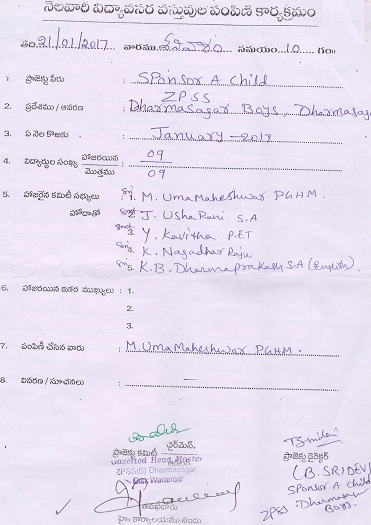 నెలవారీ విద్యావసర వస్తువుల పంపిణీ కార్యక్రమం
తేది: 21/01/2017 వారము శనివారం సమయం 10 గం॥
1. ప్రాజెక్టు పేరు : SPonsor A Child
2. ప్రదేశము / ఆవరణ : ZPSS
Dharmasagar Boys, Dharmasaga
3. ఏ నెల కొఱకు : January - 2017
4. విద్యార్థుల సంఖ్య హాజరయిన : 09
మొత్తము : 09
5. హాజరైన కమిటీ సభ్యులు : 1. M. UmaMaheshwar PGHM.
హోదాతో 2. J. Usha Rani S.A
3. Y. Kavitha P.ET
4. K. Nagadhar Raju
5. K.B. Dharmaprakash S.A (English).
6. హాజరయిన ఇతర ముఖ్యులు : 1.
2.
3.
7. పంపిణీ చేసిన వారు : M. UmaMaheshwar PGHM.
8. వివరణ / సూచనలు : —
ప్రాజెక్టు కమిటీ చైర్మెన్,
Gazetted Head Master
ZPSS(B) Dharmasagar,
Dist. Warangal
ప్రాజెక్టు డైరెక్టర్
(B. SRIDEVI
SPonsor A Child
ZPSS Dharmasagar
Boys.
హెం కార్యాలయము నందు